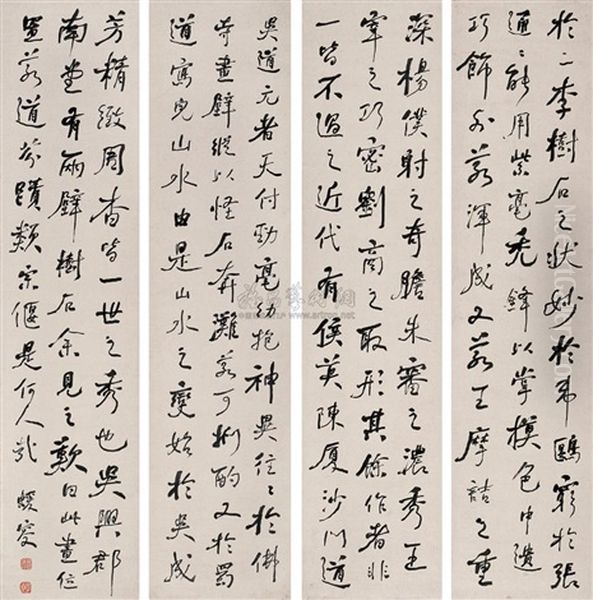 於二李樹石之狀妙於韋鷗窮於張
通〻能用紫毫禿鋒以掌模色中遺
巧飾外若渾成又若王摩詰之重
深楊僕射之奇贍朱審之濃秀王
宰之巧密劉商之取形其餘作者非
一皆不過之近代有侯莫陳厦沙门道
吳道元者天付勁毫幼抱神異往〻於佛
寺畫壁縱以怪石奔灘若可捫酌又於蜀
道寫皃山水由是山水之變始於吳成
芳精緻周杳皆一世之秀也吳興郡
南堂有兩壁樹石余見之歎曰此畫位
置若道芬蹟類宗偃是何人哉 蝯叟
www.artron.net